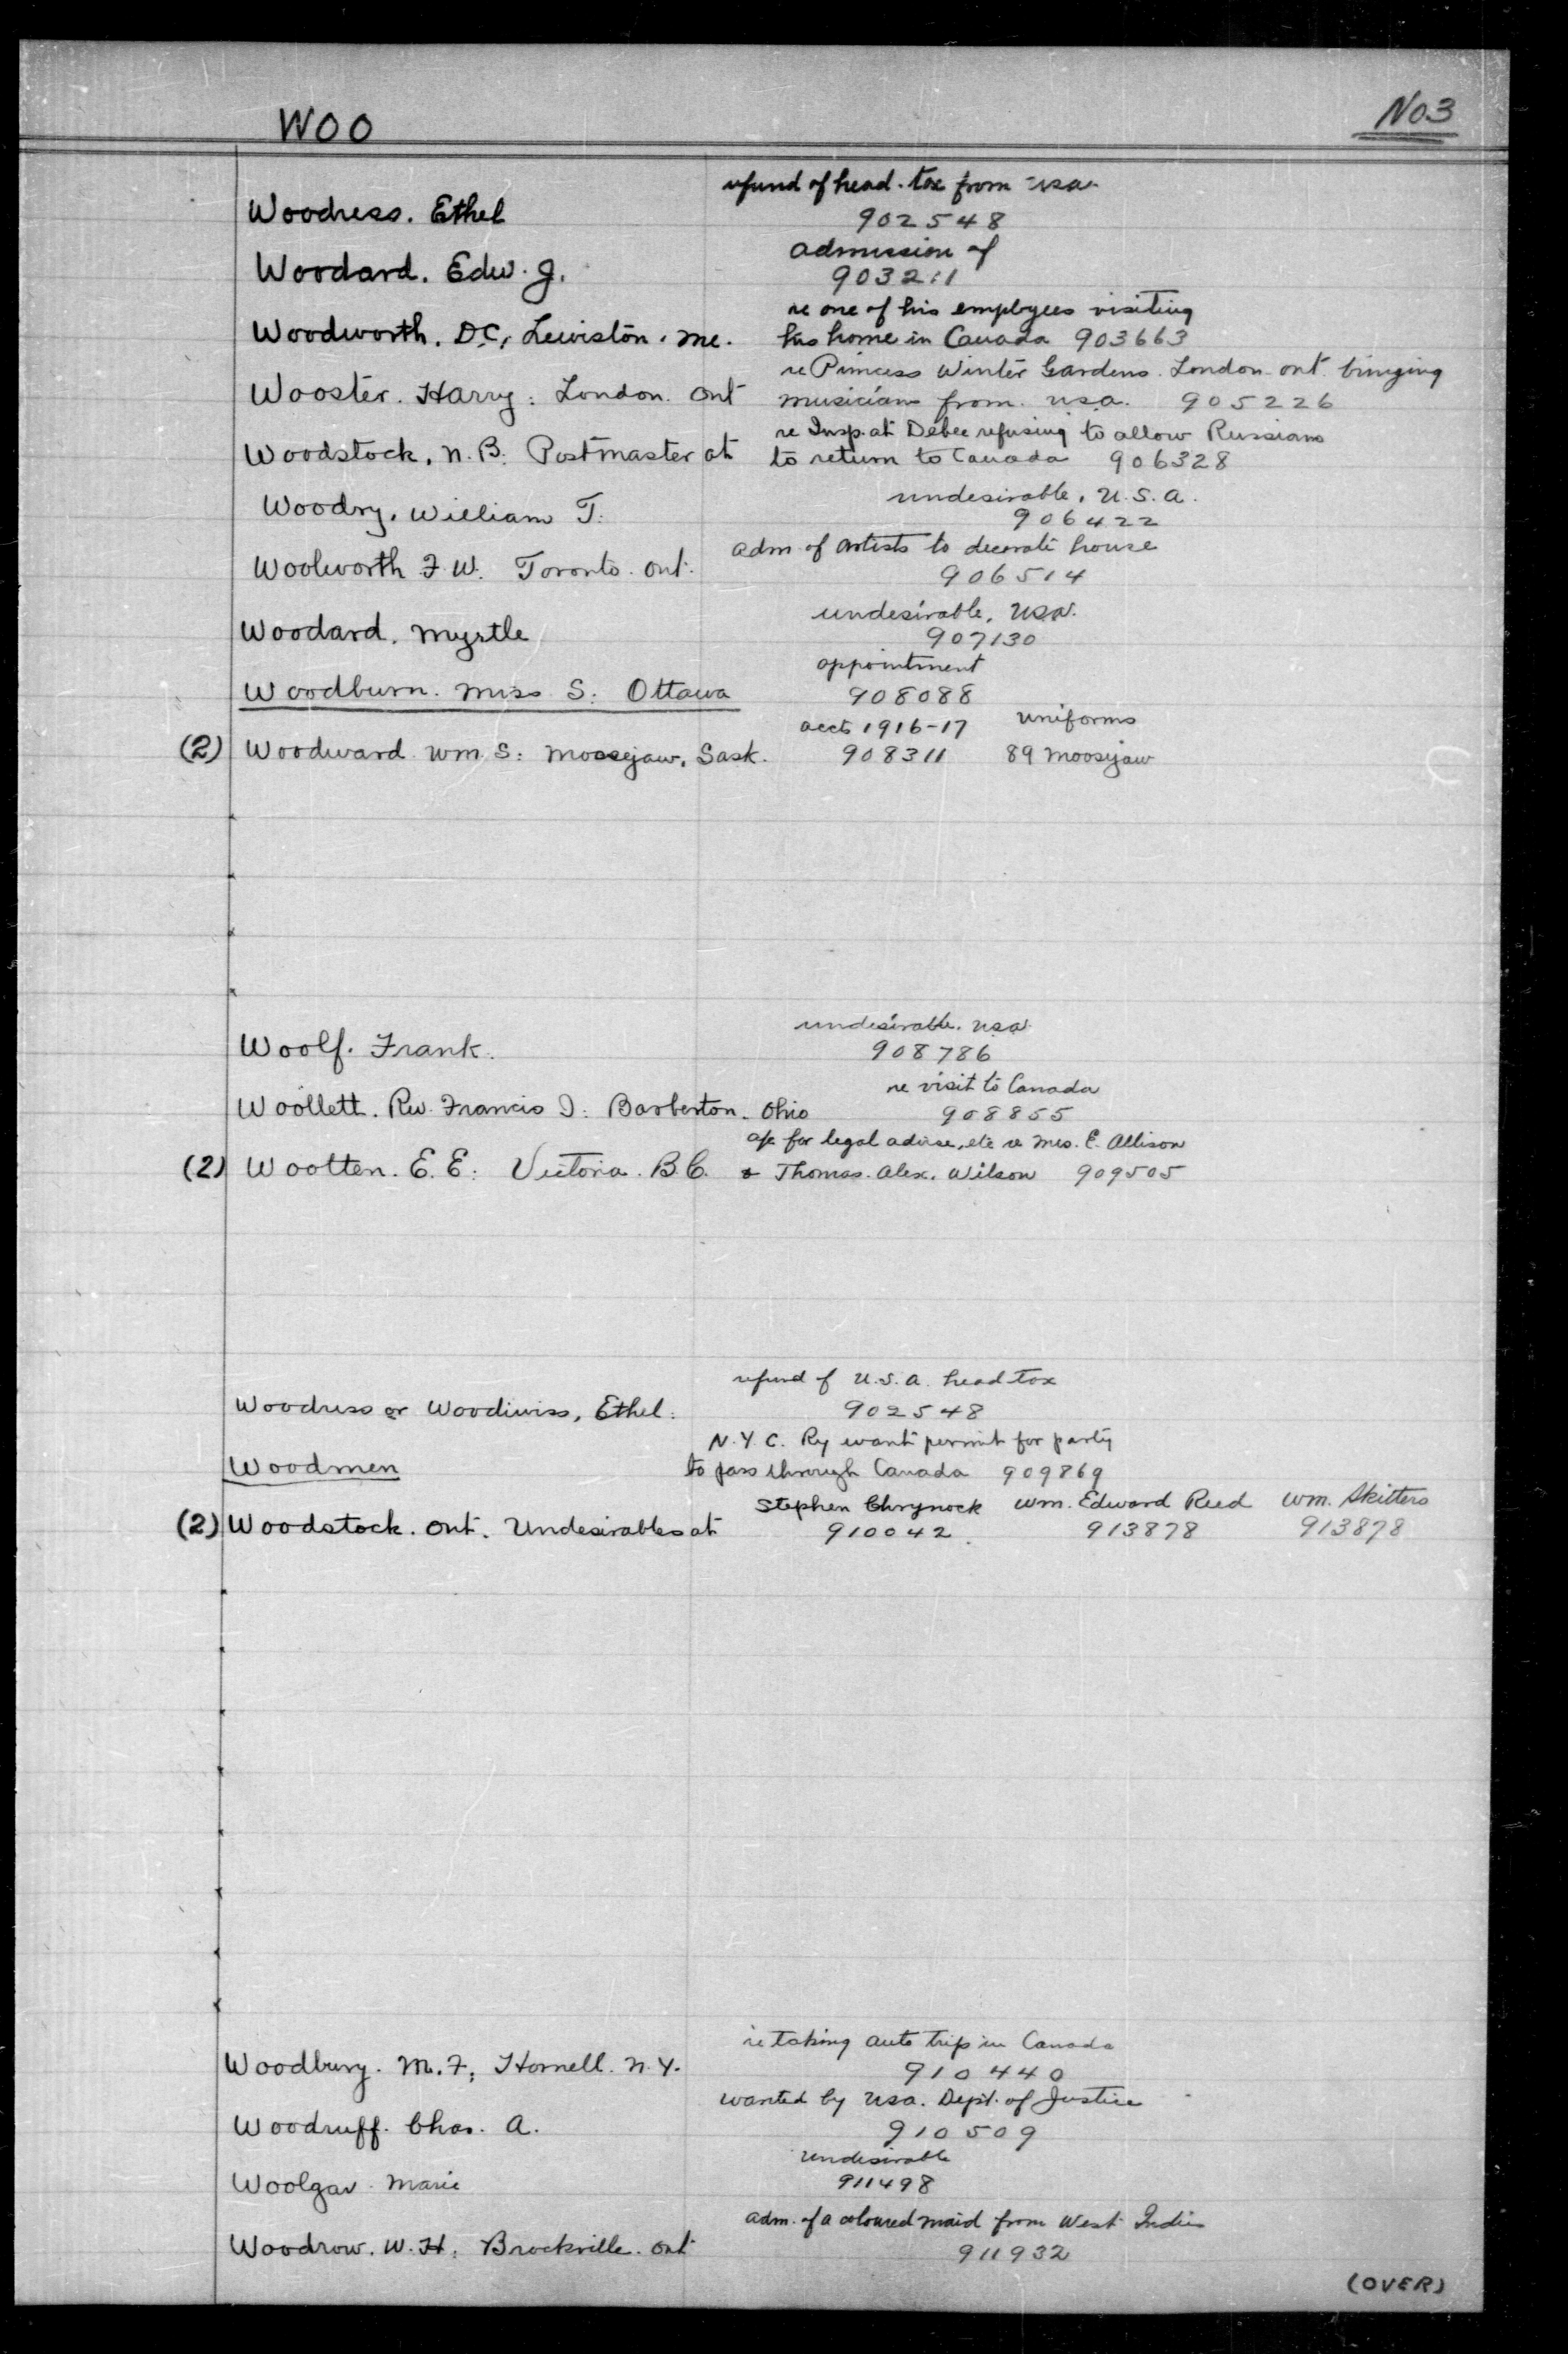 WOO
No3
refund of head. tax from usa.
Woodress. Ethel
902548
admission of
Woodard. Edw. J.
903211
re one of his employees visiting
Woodworth. D.C, Lewiston. me. his home in Canada 903663
re Princess Winter Gardens. London ont. bringing
Wooster. Harry: London. Ont musicians from. usa. 905226
re Insp. at Debec refusing to allow Russians
Woodstock. N.B. Postmaster at to return to Canada 906328
undesirable. U.S.A.
Woodry. William T.
906422
adm of artists to decorate house
Woolworth F.W. Toronto. Ont.
906514
undesirable, USA.
Woodard. Myrtle
907130
appointment
Woodburn. Miss S: Ottawa 908088
accts 1916-17 uniforms
(2) Woodward Wm S: Moosejaw, Sask. 908311 89 Moosejaw
undesirable. usa.
Woolf. Frank.
908786
re visit to Canada
Woollett. Rev. Francis I: Barberton. Ohio 908855
ask for legal advise, etc re Mrs. E. Allison
(2) Wootten. E.E: Victoria. B.C. & Thomas. Alex. Wilson 909505
refund of U.S.A. head tax
Woodress or Woodiwiss, Ethel. 902548
N.Y.C. Ry want permit for party
Woodmen to pass through Canada 909869
Stephen Chrynock Wm. Edward Reed Wm. Skitters
(2) Woodstock. Ont. Undesirables at 910042. 913878 913878
re taking auto trip in Canada
Woodbury. M.F, Hornell. N.Y.
910440
wanted by usa. Dept. of Justice
Woodruff. Chas. A.
910509
undesirable
Woolgar Marie
911498
adm. of a coloured maid from West Indies
Woodrow. W.H, Brockville. Ont
911932
(OVER)